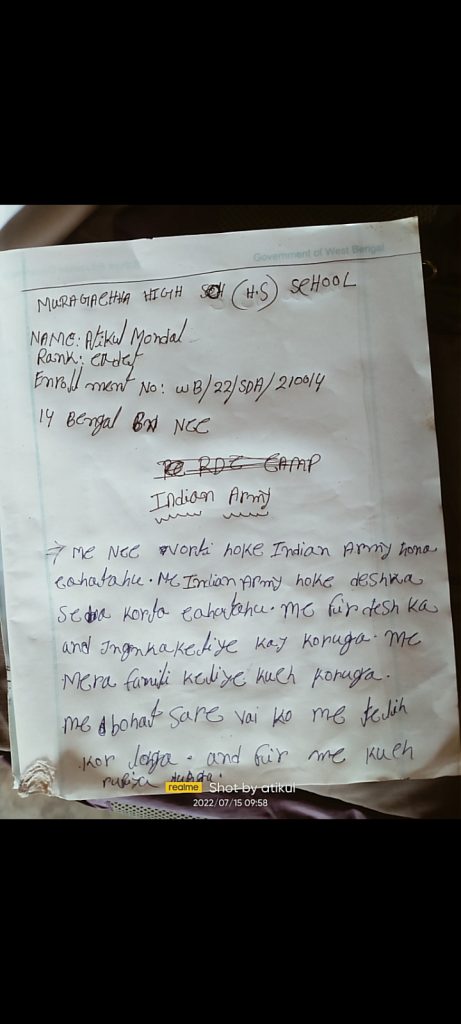 Government of West Bengal
MURAGACHHA HIGH SCH (H.S) SCHOOL
NAME: Atikul Mondal
Rank: cadet
Enrollment No: WB/22/SDA/210014
14 Bengal Bn NCC
RDC CAMP
Indian Army
→ Me NCC vorti hoke Indian Army hona
cahatahu. Me Indian Army hoke deshka
Seba korta cahatahu. Me fir desh ka
and kediye kaj koruga. Me
Mera famili kediye kuch koruga.
Me bohat sare vai ko me
kor . and fir me kuch
rupiya
realme Shot by atikul
2022/07/15 09:58